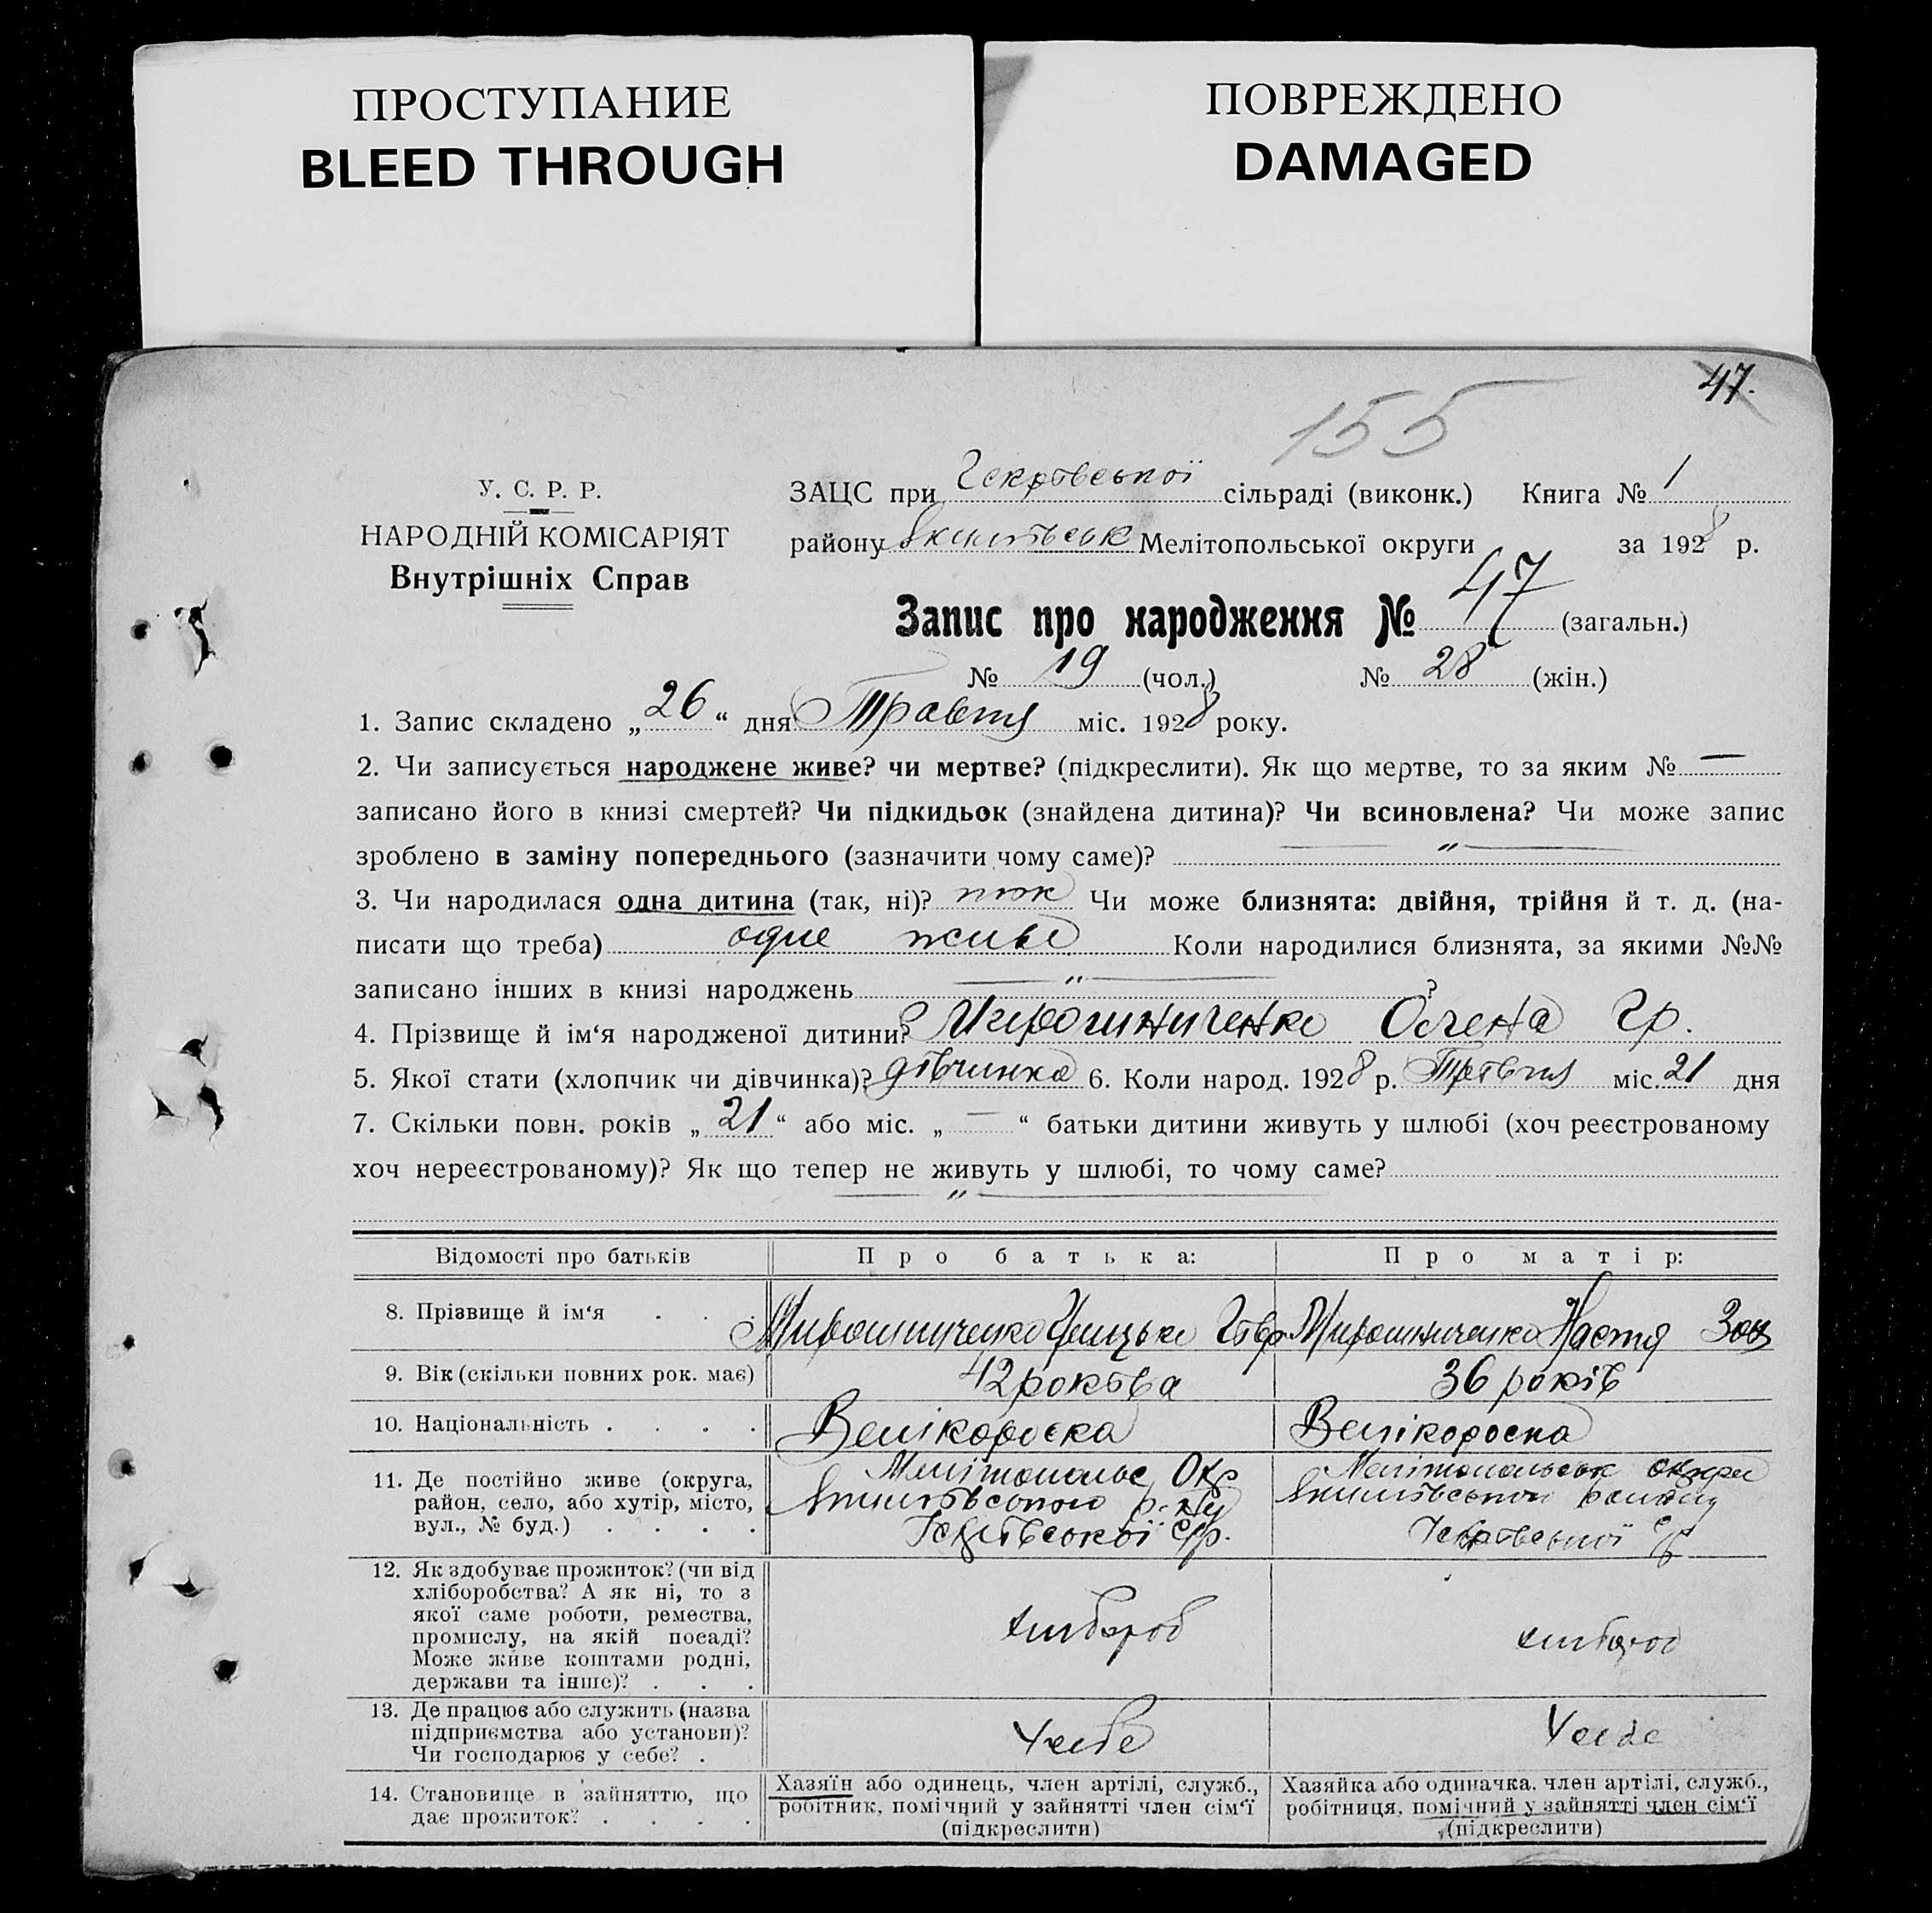 ПРОСТУПАНИЕ
BLEED THROUGH
ПОВРЕЖДЕНО
DAMAGED
47.
155
У. С. Р. Р.
НАРОДНІЙ КОМІСАРІЯТ
Внутрішніх Справ
ЗАЦС при сільраді (виконк.) Книга № 1
району Мелітопольської округи за 1928 р.
Запис про народження № 47 (загальн.)
№ 19 (чол.) № 28 (жін.)
1. Запис складено „26“ дня Травня міс. 1928 року.
2. Чи записується народжене живе? чи мертве? (підкреслити). Як що мертве, то за яким № —
записано його в книзі смертей? Чи підкидьок (знайдена дитина)? Чи всиновлена? Чи може запис
зроблено в заміну попереднього (зазначити чому саме)? — „ —
3. Чи народилася одна дитина (так, ні)? так Чи може близнята: двійня, трійня й т. д. (на-
писати що треба) одне живе Коли народилися близнята, за якими №№
записано інших в книзі народжень — „ — ?
4. Прізвище й ім‘я народженої дитини? Мирошниченко Олена Гр.
5. Якої стати (хлопчик чи дівчинка)? дівчинка 6. Коли народ. 1928 р. Травня міс. 21 дня
7. Скільки повн. років „21“ або міс. „—“ батьки дитини живуть у шлюбі (хоч реєстрованому
хоч нереєстрованому)? Як що тепер не живуть у шлюбі, то чому саме?
— „ —
Відомості про батьків Про батька: Про матір:
8. Прізвище й ім‘я . . . Мирошниченко Мирошниченко Настя
9. Вік (скільки повних рок. має) 42 роківа 36 років
10. Національність . . . . Велікороска Велікороска
11. Де постійно живе (округа,
район, село, або хутір, місто,
вул., № буд.) . . . .
Мелітопольс Окр
Якимівського р-ну
Мелітопольськ округи
Якимівського району
12. Як здобуває прожиток? (чи від
хліборобства? А як ні, то з
якої саме роботи, ремества,
промислу, на якій посаді?
Може живе коштами родні,
держави та інше)? . . .
хлібороб хлібороб
13. Де працює або служить (назва
підприємства або установи)?
Чи господарює у себе? .
У себе У себе
14. Становище в зайняттю, що
дає прожиток? . . . .
Хазяїн або одинець, член артілі, служб.,
робітник, помічний у зайнятті член сім‘ї
(підкреслити)
Хазяйка або одиначка, член артілі, служб.,
робітниця, помічний у зайнятті член сім‘ї
(підкреслити)